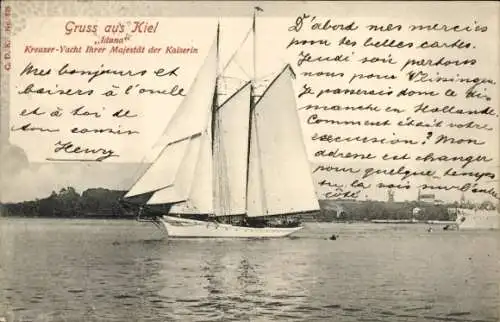 Gruss aus Kiel
"Iduna"
Kreuzer-Yacht Ihrer Majestät der Kaiserin
Mes bonjours et
baisers à l'oncle
et à toi de
ton cousin
Henry
D'abord mes mercis
pour tes belles cartes.
Jeudi soir partons
nous pour Vlissingen
Je passerais donc le di-
manche en Hollande.
Comment était votre
excursion? Mon
adresse est changer
pour quelque temps